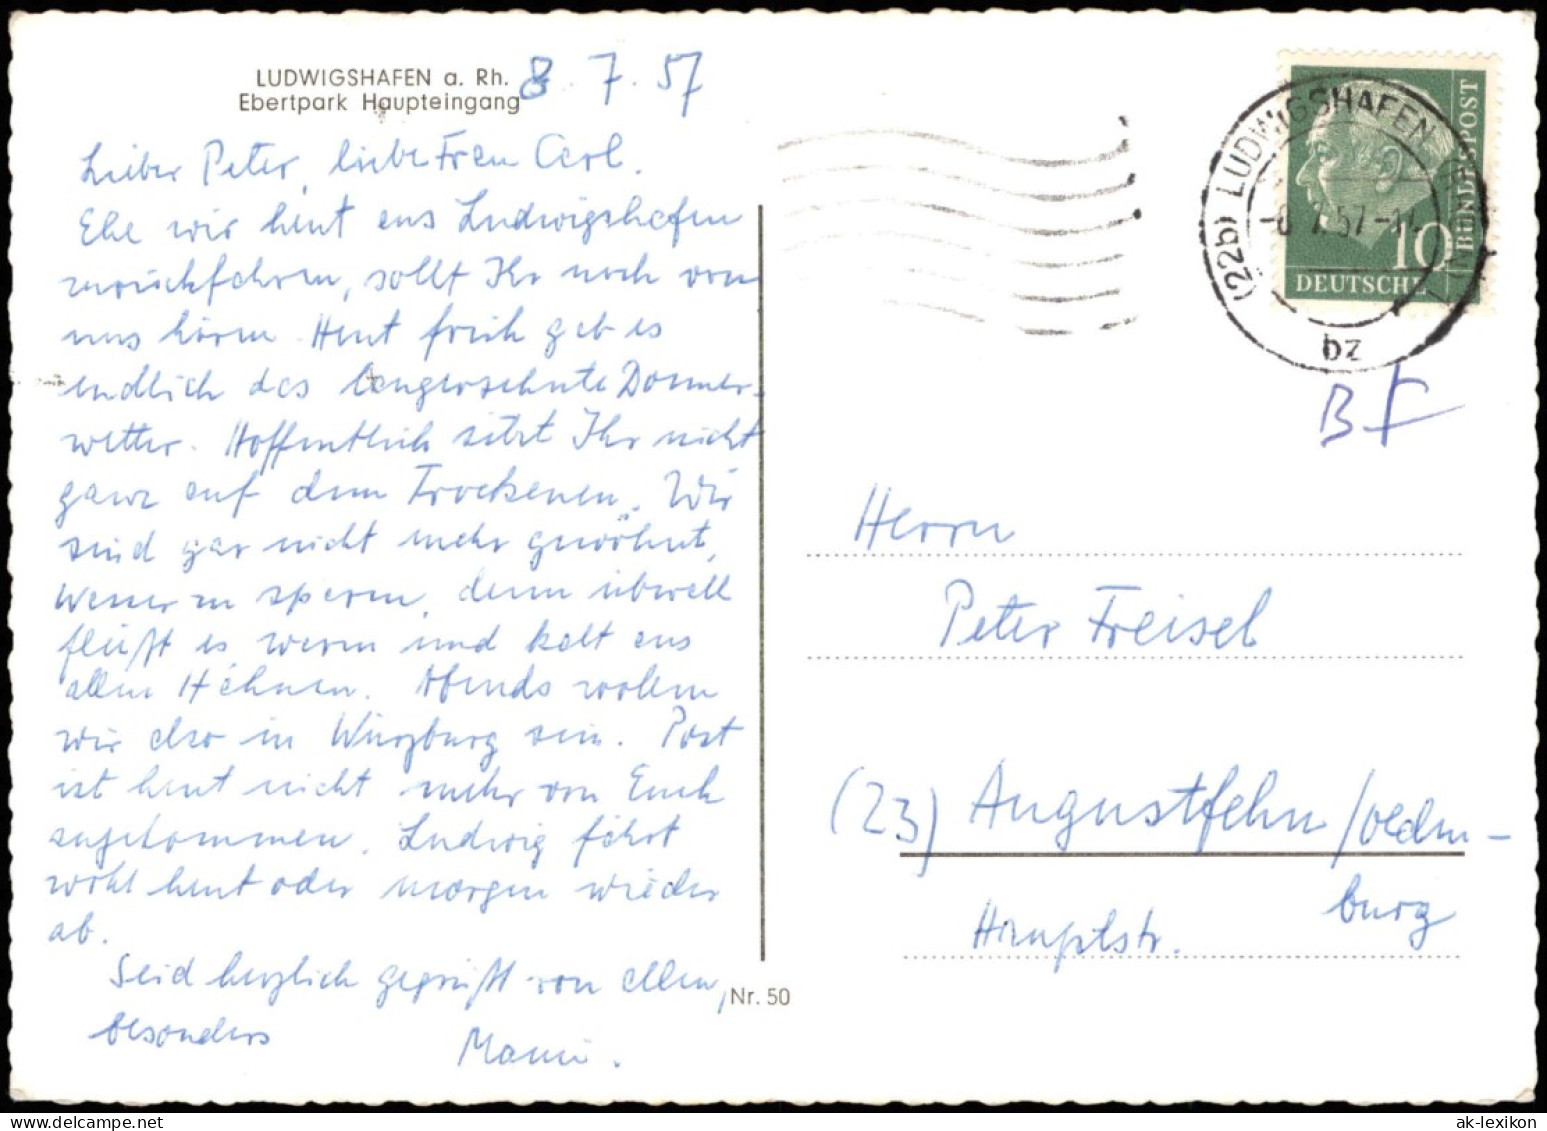 LUDWIGSHAFEN a. Rh.
Ebertpark Haupteingang
8. 7. 57
Lieber Peter, liebe Frau Carl.
Ehe wir heut aus Ludwigshafen
zurückfahren, sollt Ihr noch von
uns hören. Heut früh gab es
endlich das langersehnte Donner-
wetter. Hoffentlich sitzt Ihr nicht
ganz auf dem Trockenen. Wir
sind gar nicht mehr gewöhnt,
Wasser zu sparen, denn überall
fließt es warm und kalt aus
allen Hähnen. Abends wollen
wir also in Würzburg sein. Post
ist heut nicht mehr von Euch
angekommen. Ludwig fährt
wohl heut oder morgen wieder
ab.
Seid herzlich gegrüßt von allen,
besonders
Mami.
Nr. 50
(22b) LUDWIGSHAFEN
-8.7.57-
bz
10
DEUTSCHE
BUNDESPOST
Herrn
Peter Freisel
(23) Augustfehn/Olden-
burg
Hauptstr.
ak-lexikon